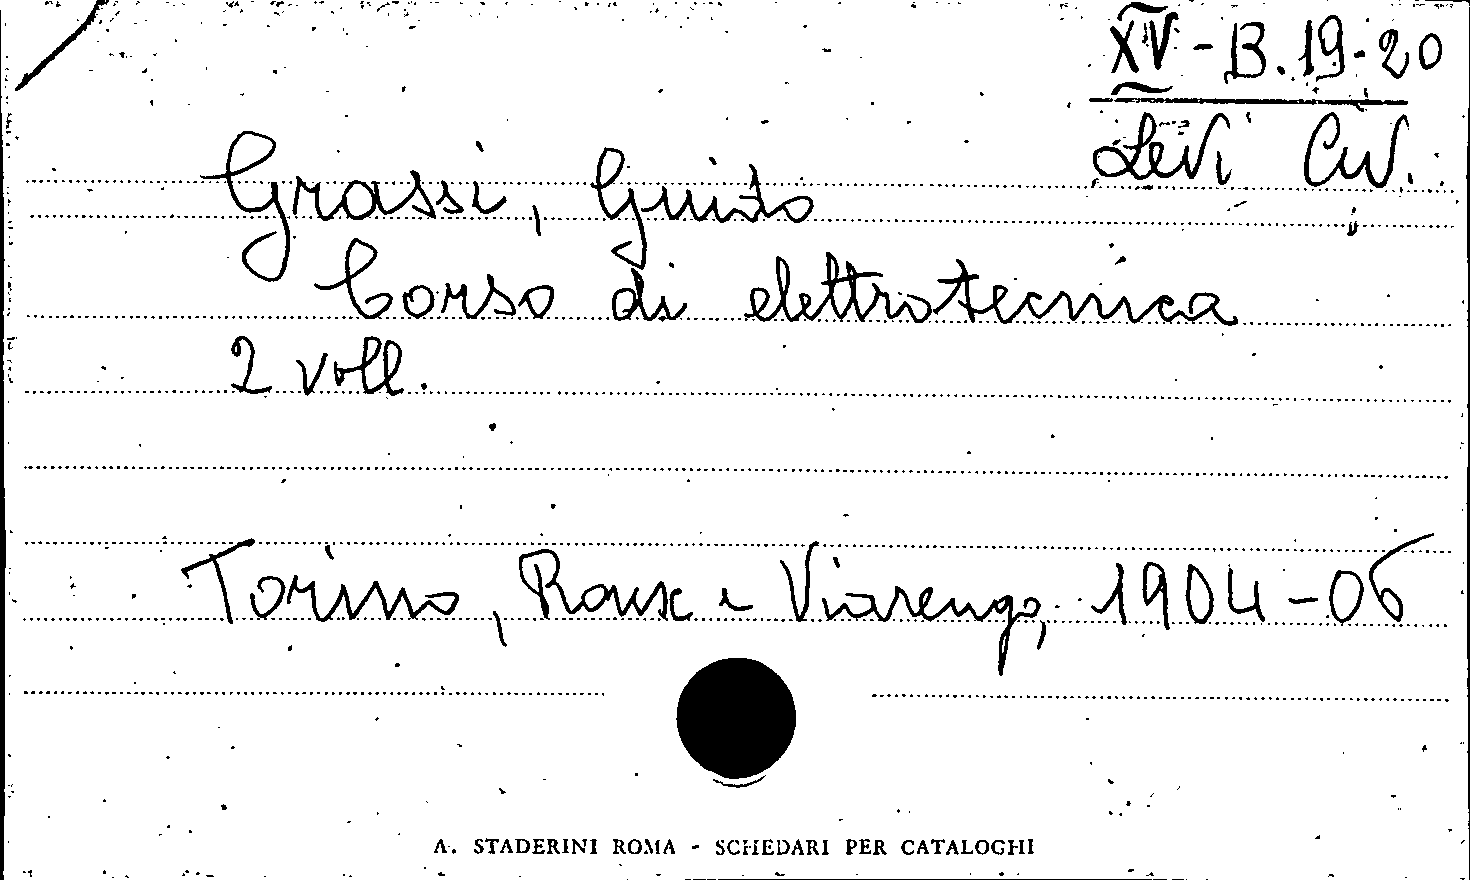 XV - B. 19-20
Levi Civ.
Grassi, Guido
Corso di elettrotecnica
2 voll.
Torino, Roux e Viarengo, 1904-06
A. STADERINI ROMA - SCHEDARI PER CATALOGHI